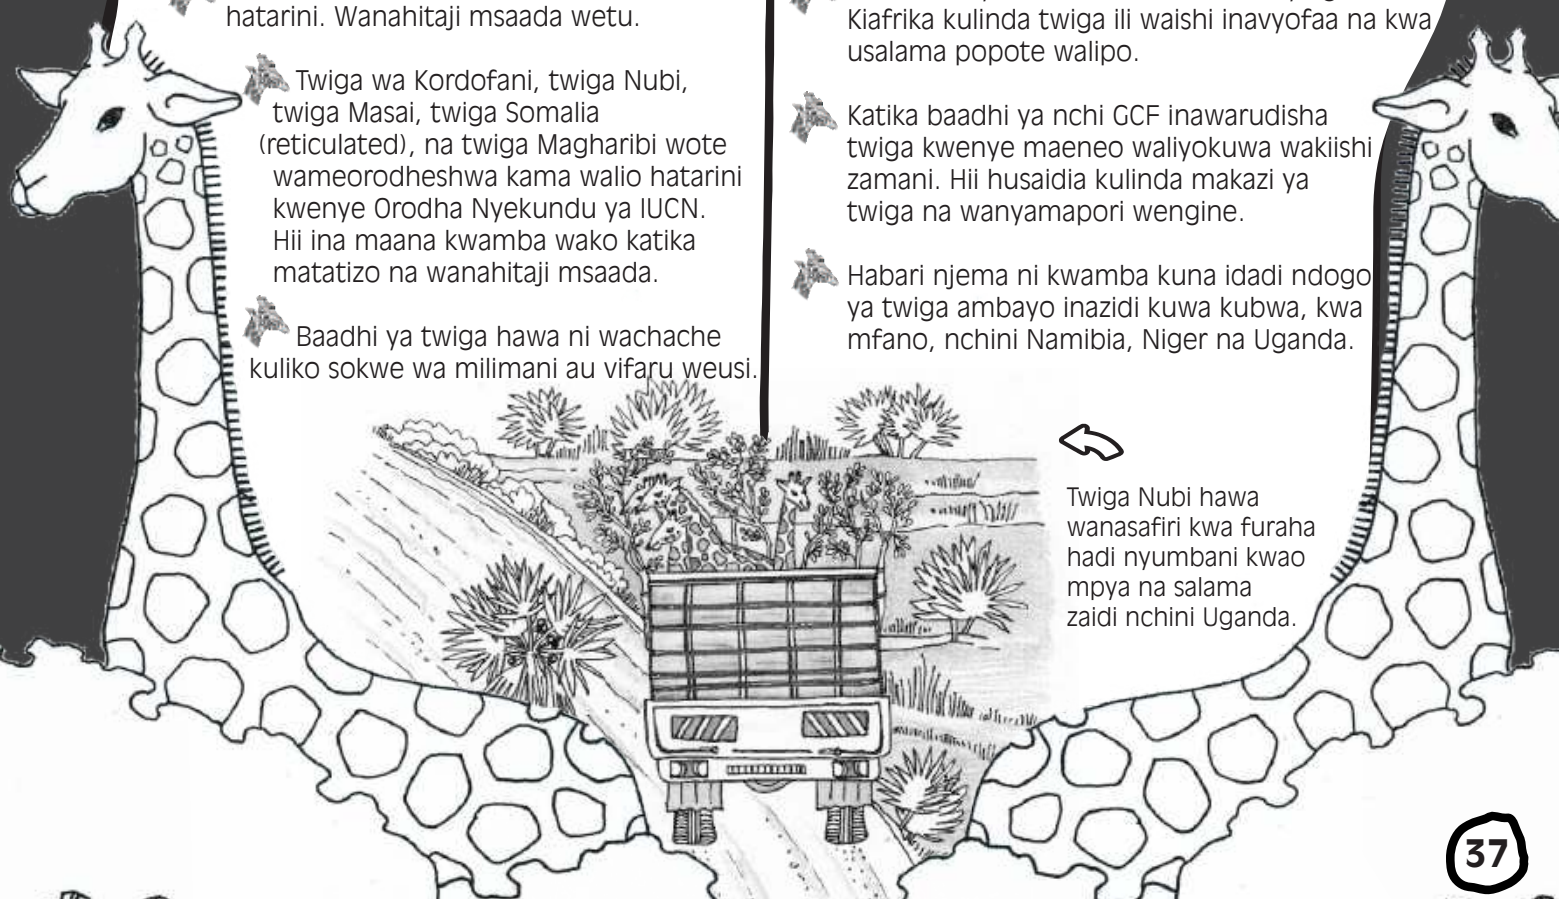 hatarini. Wanahitaji msaada wetu.
Twiga wa Kordofani, twiga Nubi,
twiga Masai, twiga Somalia
(reticulated), na twiga Magharibi wote
wameorodheshwa kama walio hatarini
kwenye Orodha Nyekundu ya IUCN.
Hii ina maana kwamba wako katika
matatizo na wanahitaji msaada.
Baadhi ya twiga hawa ni wachache
kuliko sokwe wa milimani au vifaru weusi.
Kiafrika kulinda twiga ili waishi inavyofaa na kwa
usalama popote walipo.
Katika baadhi ya nchi GCF inawarudisha
twiga kwenye maeneo waliyokuwa wakiishi
zamani. Hii husaidia kulinda makazi ya
twiga na wanyamapori wengine.
Habari njema ni kwamba kuna idadi ndogo
ya twiga ambayo inazidi kuwa kubwa, kwa
mfano, nchini Namibia, Niger na Uganda.
Twiga Nubi hawa
wanasafiri kwa furaha
hadi nyumbani kwao
mpya na salama
zaidi nchini Uganda.
37